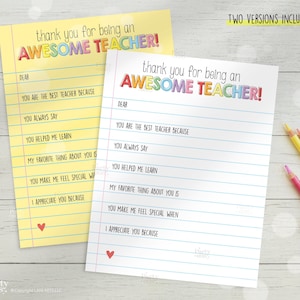 TWO VERSIONS INCLU
thank you for being an
AWESOME TEACHER!
DEAR
YOU ARE THE BEST TEACHER BECAUSE
YOU ALWAYS SAY
YOU HELPED ME LEARN
MY FAVORITE THING ABOUT YOU IS
YOU MAKE ME FEEL SPECIAL WHEN
I APPRECIATE YOU BECAUSE
thank you for being an
AWESOME TEACHER!
DEAR
YOU ARE THE BEST TEACHER BECAUSE
YOU ALWAYS SAY
YOU HELPED ME LEARN
MY FAVORITE THING ABOUT YOU IS
YOU MAKE ME FEEL SPECIAL WHEN
I APPRECIATE YOU BECAUSE